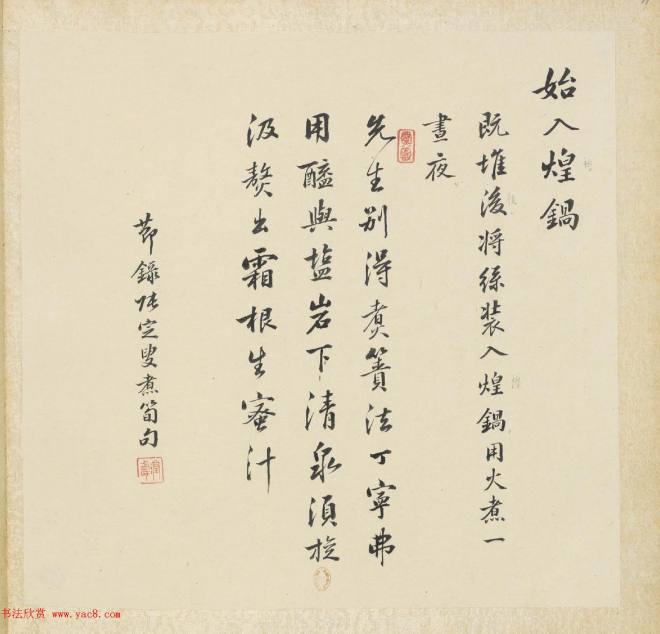 始入煌鍋
既堆後将絲装入煌鍋用火煮一
晝夜
先生别得煮簀法丁寧弗
用醯與塩岩下清泉須旋
汲熬出霜根生蜜汁
節錄陸定叟煮筍句
书法欣赏 www.yac8.com